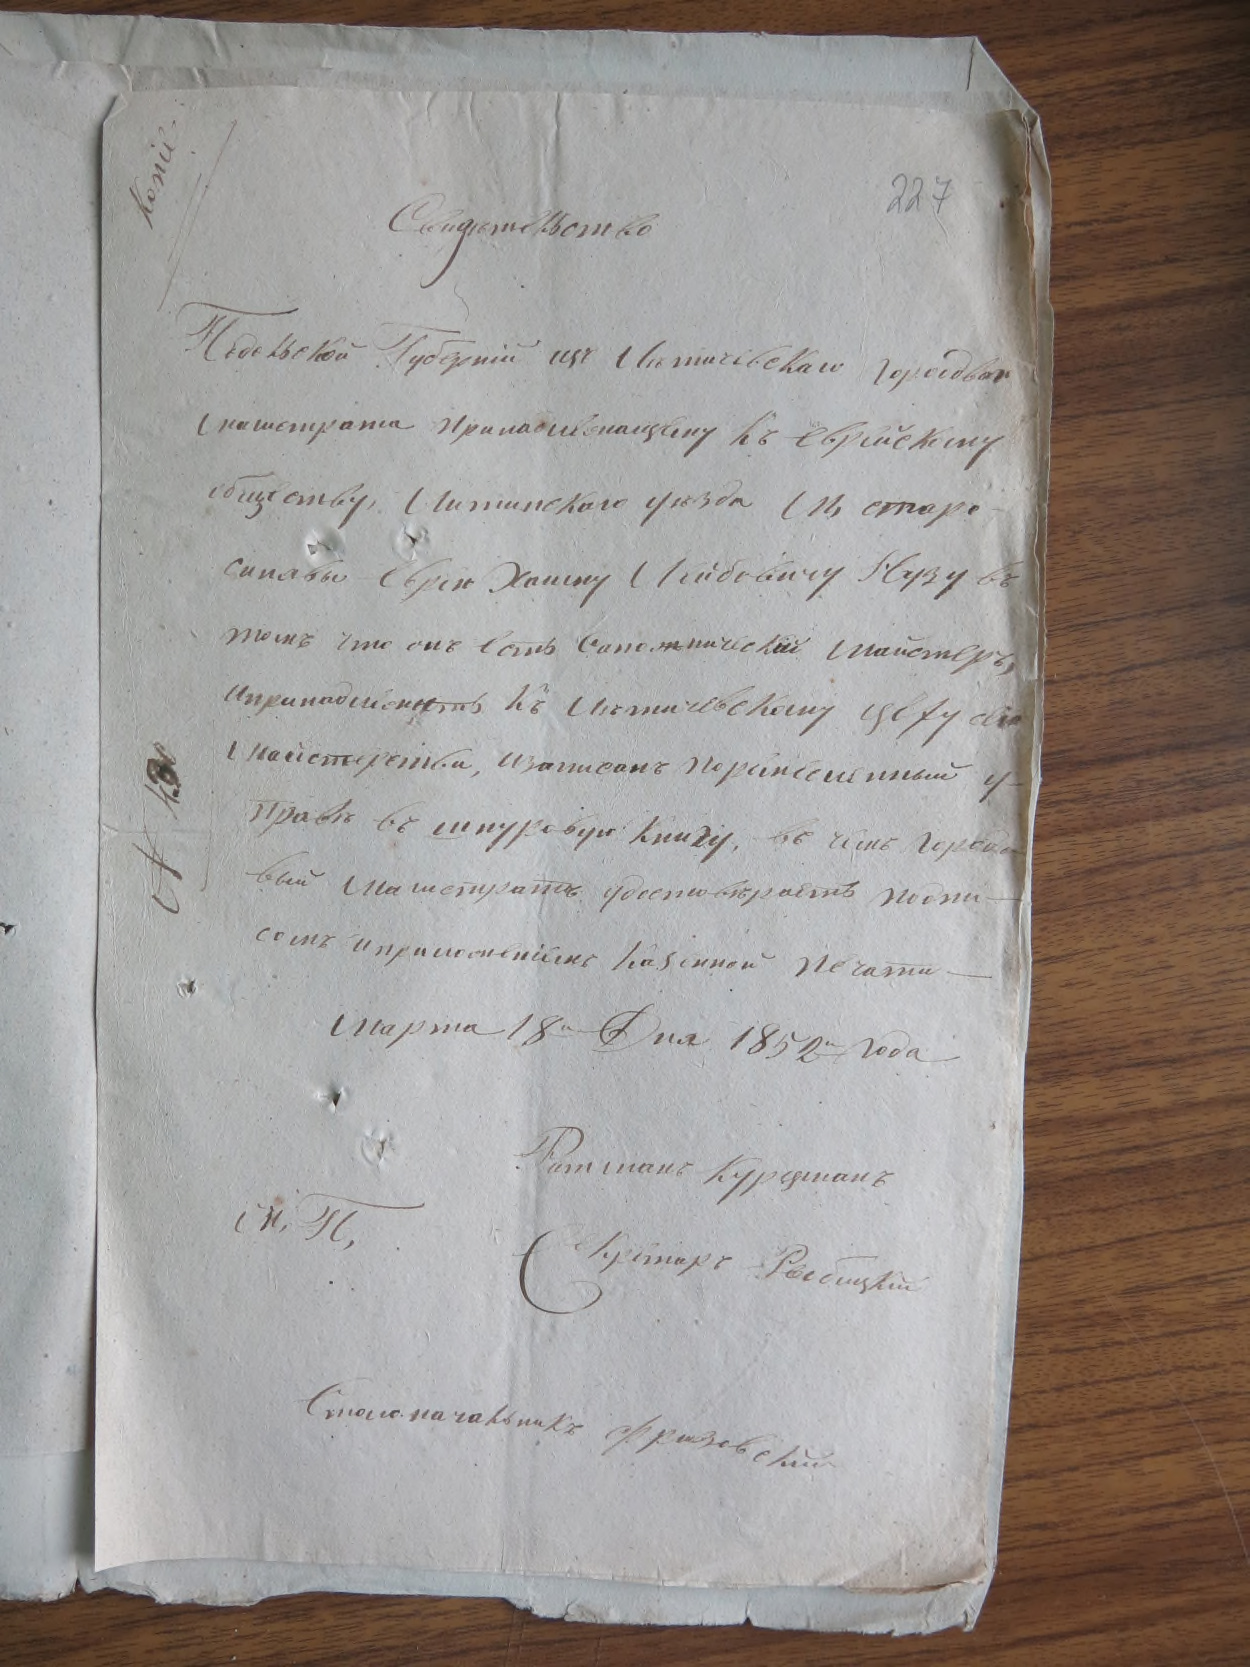 Копія
227
Свидетельство
Подольской Губерніи изъ Лѣтичевскаго Городоваг
Магистрата принадлежащему къ Еврейскому
обществу, Литинскаго уѣзда М, старо-
синявы Еврею Хаиму Лейбовичу въ
томъ что онъ есть Сапожническій Майстеръ,
ипринадлежитъ къ Лѣтичевскому цеху сего
Майстерства, изаписанъ поремесленный у-
правѣ въ шнуровую книгу, въ чемъ Городо-
вый Магистратъ удостовѣряетъ подпи-
сомъ иприложеніемъ казенной печати
Марта 18го Дня 1852го года
Ратманъ Курцманъ
М. П,
Секретарь Рыбицкій
Столоначальникъ Фризовскій
№